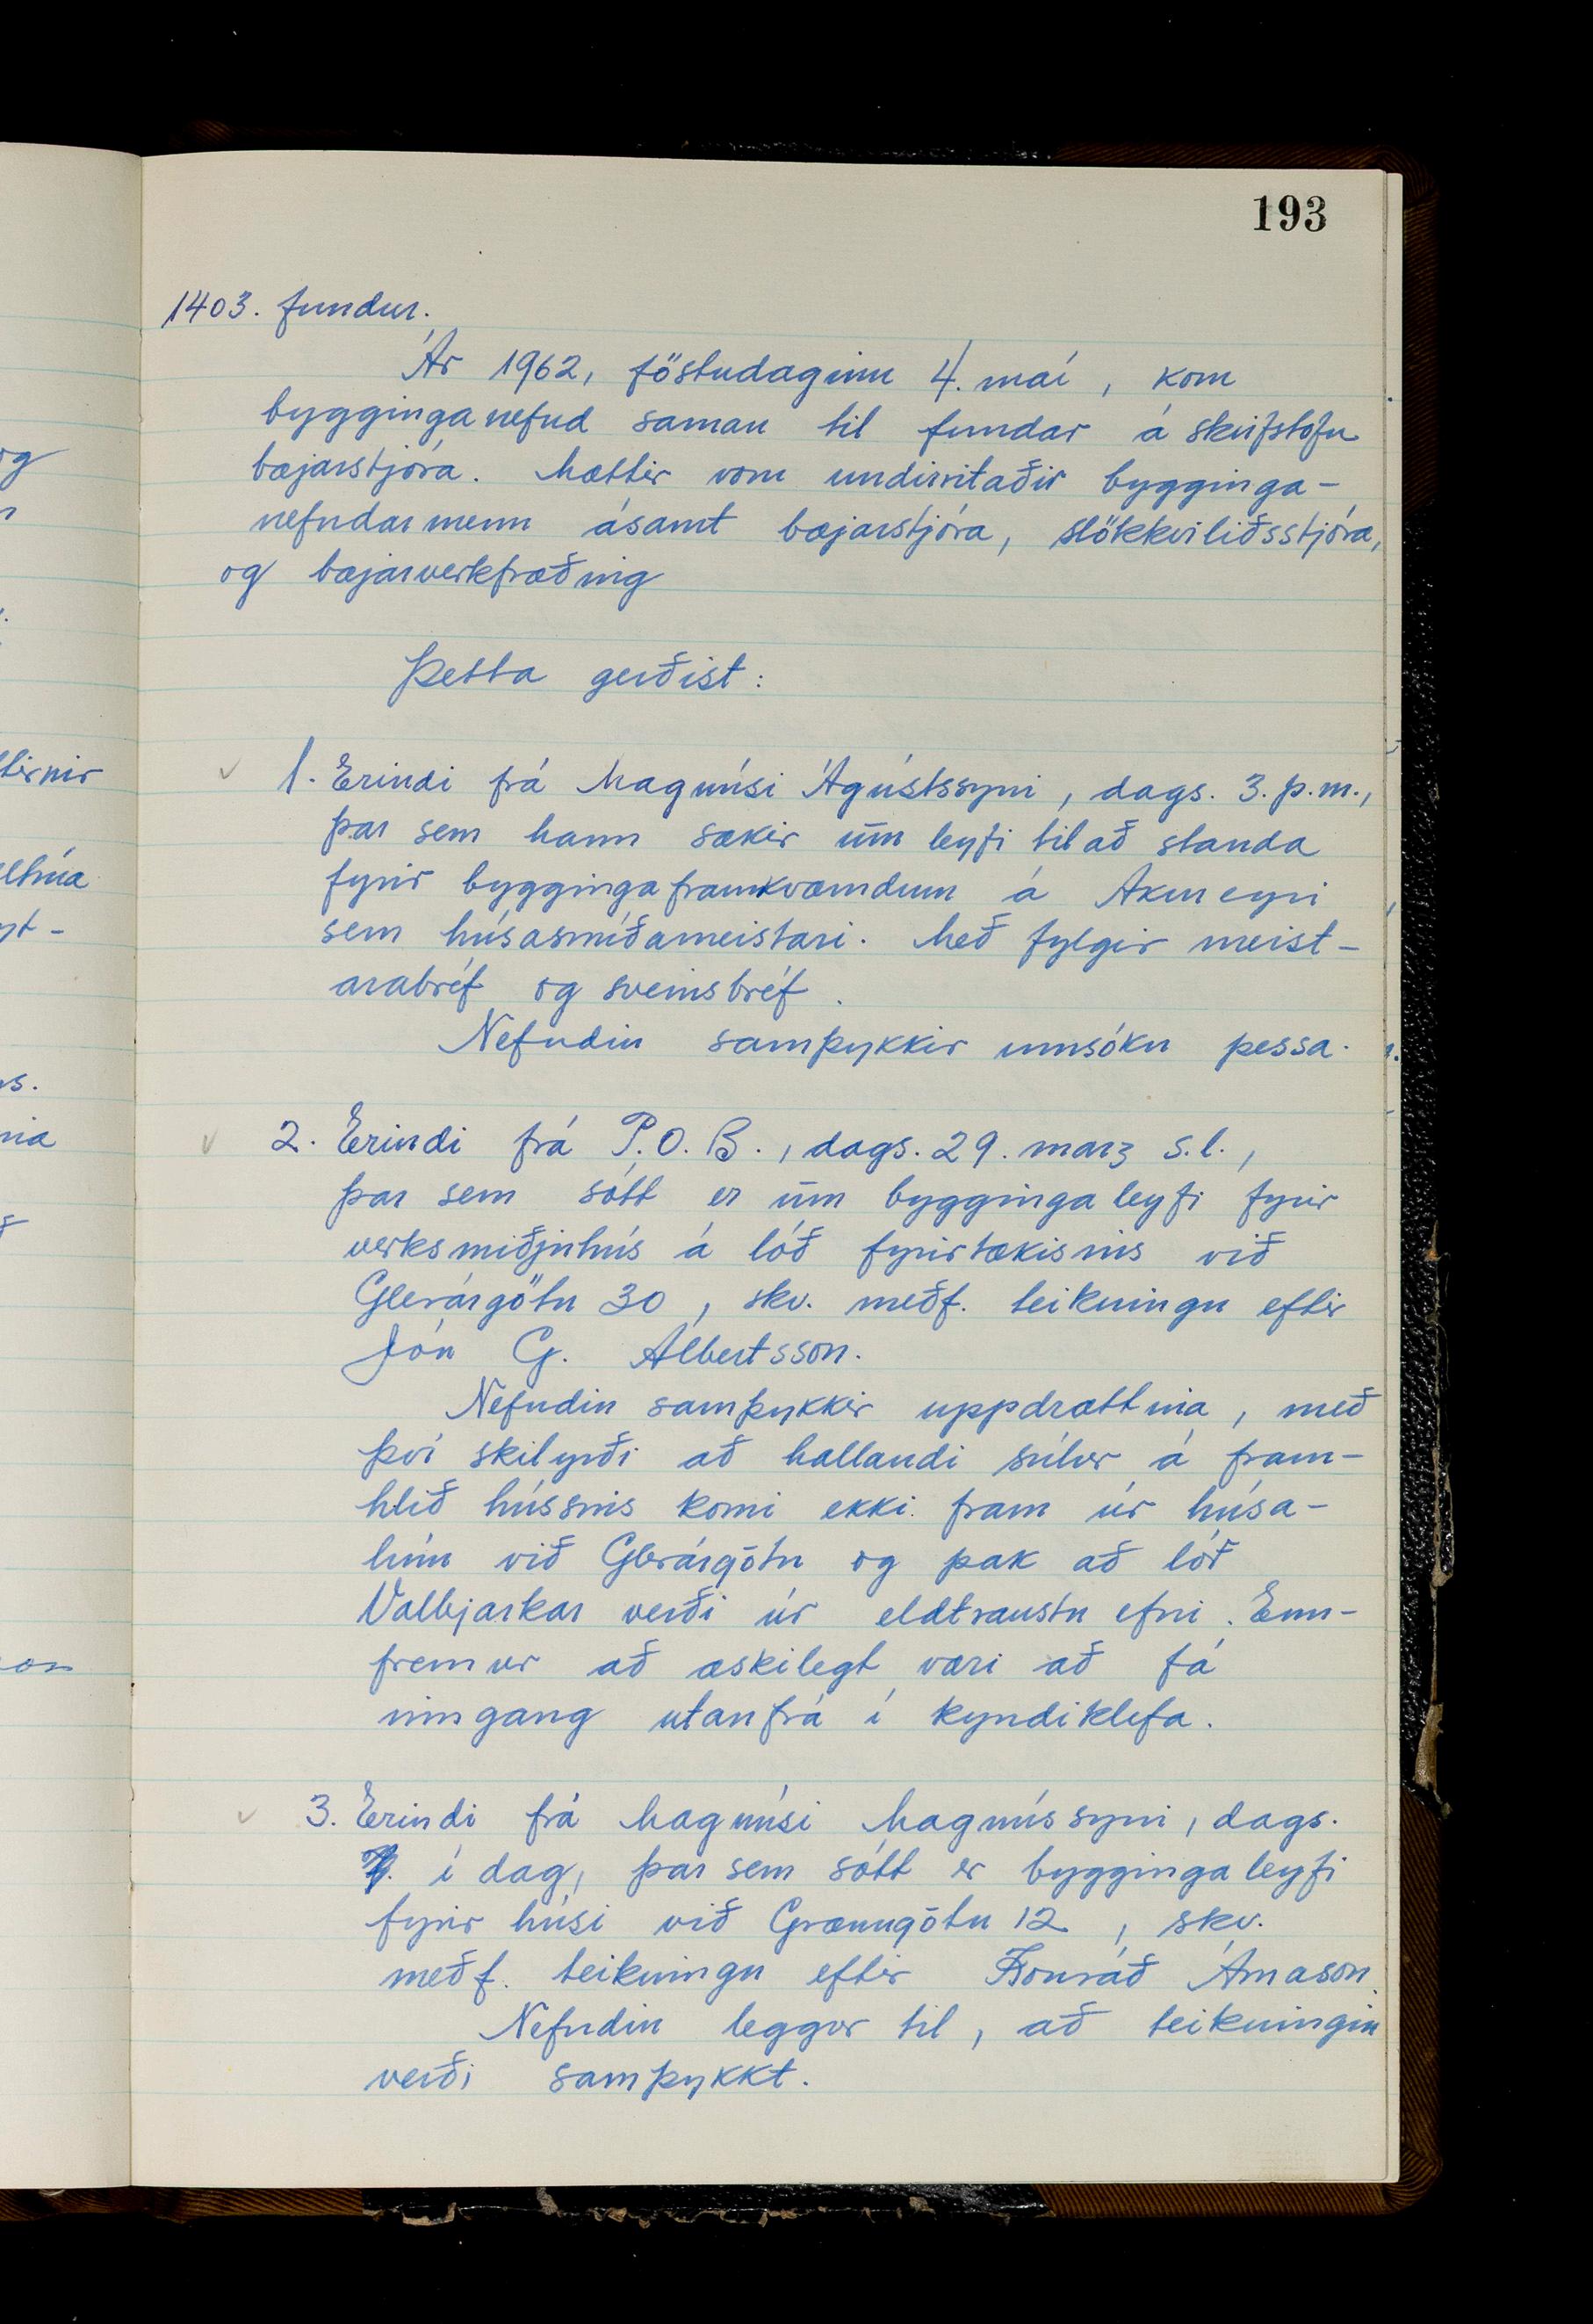 193
1403. fundur.
Ár 1962, föstudaginn 4. maí, kom
bygginganefnd saman til fundar á skrifstofu
bæjarstjóra. Mættir voru undirritaðir bygginga-
nefndarmenn ásamt bæjarstjóra, slökkviliðsstjóra,
og bæjarverkfræðing
Þetta gerðist:
1. Erindi frá Magnúsi Ágústssyni, dags. 3. þ.m.,
þar sem hann sækir um leyfi til að standa
fyrir byggingaframkvæmdum á Akureyri
sem húsasmíðameistari. Með fylgir meist-
arabréf og sveinsbréf.
Nefndin samþykkir umsókn þessa.
2. Erindi frá P.O.B., dags. 29. marz s.l.,
þar sem sótt er um byggingaleyfi fyrir
verksmiðjuhús á lóð fyrirtækisins við
Glerárgötu 30, skv. meðf. teikningu eftir
Jón G. Albertsson.
Nefndin samþykkir uppdrættina, með
því skilyrði að hallandi súlur á fram-
hlið hússins komi ekki fram úr húsa-
línu við Glerárgötu og þak að lóð
Valbjarkar verði úr eldtraustu efni. Enn-
fremur að æskilegt væri að fá
inngang utanfrá í kyndiklefa.
3. Erindi frá Magnúsi Magnússyni, dags.
í dag, þar sem sótt er byggingaleyfi
fyrir húsi við Grænugötu 12, skv.
meðf. teikningu eftir Konráð Árnason.
Nefndin leggur til, að teikningin
verði samþykkt.